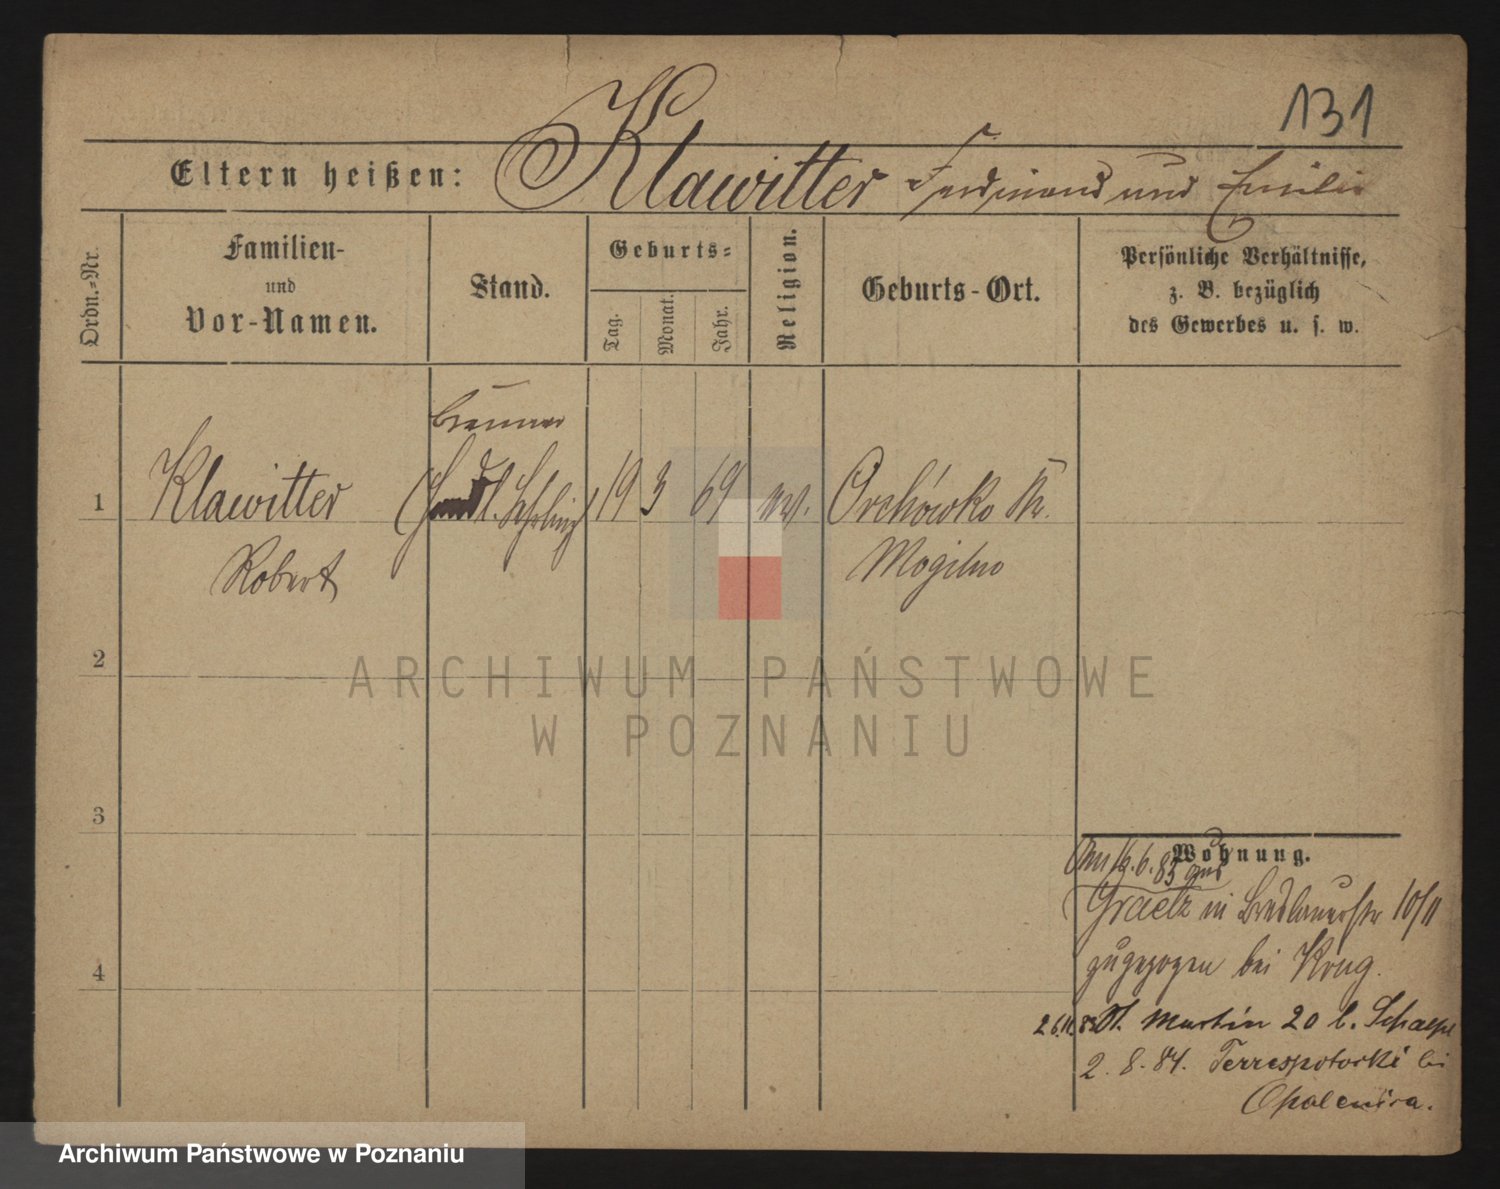 131
Eltern heißen: Klawitter Ferdinand und Emilie
Ordn.-Nr.
Familien-
und
Vor-Namen.
Stand.
Geburts-
Tag.
Monat.
Jahr.
Religion.
Geburts-Ort.
Persönliche Verhältnisse,
z. B. bezüglich
des Gewerbes u. s. w.
1 Klawitter 19 3 69 ev. Orchówko Kr.
Robert Mogilno
2
ARCHIWUM PAŃSTWOWE
W POZNANIU
3
Wohnung.
6. 83 aus
Graetz in Breslauerstr 10/11
zugezogen bei Krug.
St. Martin 20 b.
2. 8. 84. Terrespotocki bei
Opalenica.
4
Archiwum Państwowe w Poznaniu